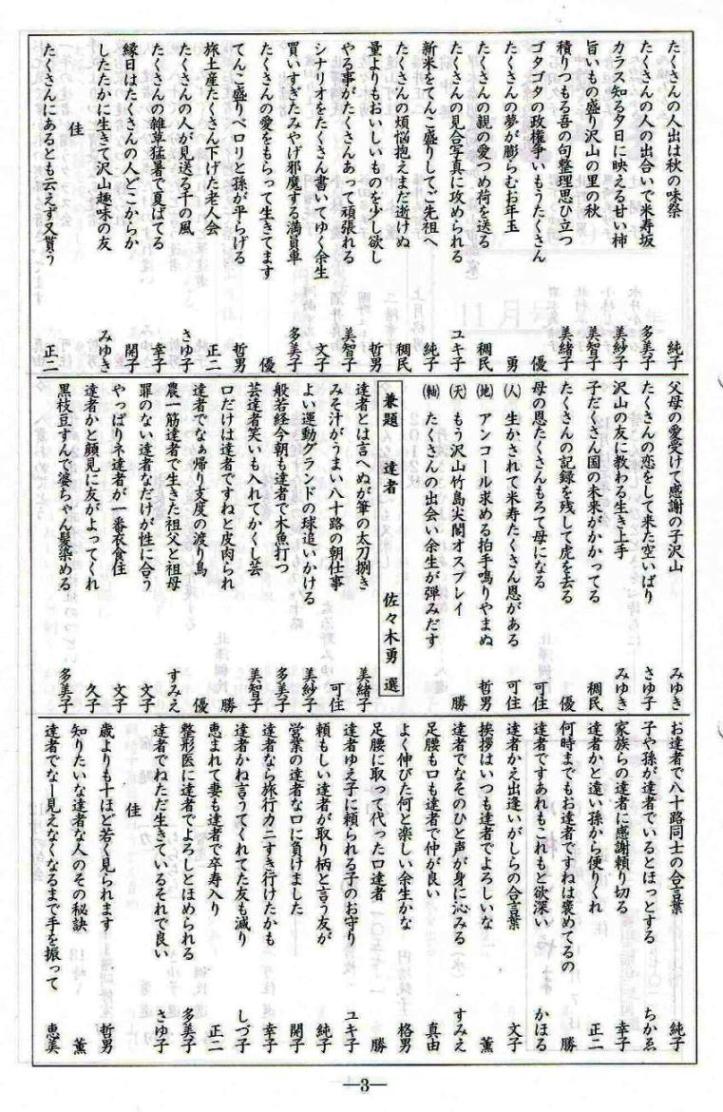 たくさんの人出は秋の味祭　純子
たくさんの人の出合いで米寿坂　多美子
カラス知る夕日に映える甘い柿　美紗子
旨いもの盛り沢山の里の秋　美智子
積りつもる吾の句整理思ひ立つ　美緒子
ゴタゴタの政権争いもうたくさん　優
たくさんの夢が膨らむお年玉　勇
たくさんの親の愛つめ荷を送る　稠民
たくさんの見合写真に攻められる　ユキ子
新米をてんこ盛りしてご先祖へ　純子
たくさんの煩悩抱えまだ逝けぬ　稠民
量よりもおいしいものを少し欲し　哲男
やる事がたくさんあって頑張れる　美智子
シナリオをたくさん書いてゆく余生　文子
買いすぎたみやげ邪魔する満員車　多美子
たくさんの愛をもらって生きてます　優
てんこ盛りペロリと孫が平らげる　哲男
旅土産たくさん下げた老人会　正二
たくさんの人が見送る千の風　さゆ子
たくさんの雑草猛暑で夏ばてる　幸子
縁日はたくさんの人どこからか　開子
したたかに生きて沢山趣味の友　みゆき
佳
たくさんにあるとも云えず又貰う　正二
父母の愛受けて感謝の子沢山　みゆき
たくさんの恋をして来た空いばり　さゆ子
沢山の友に教わる生き上手　みゆき
子だくさん国の未来がかかってる　稠民
たくさんの記録を残して虎を去る　優
母の恩たくさんもろて母になる　可住
㊟（人）　生かされて米寿たくさん恩がある　可住
（地）　アンコール求める拍手鳴りやまぬ　哲男
（天）　もう沢山竹島尖閣オスプレイ　勝
（軸）　たくさんの出会い余生が弾みだす
兼題　達者　佐々木勇　選
達者とは言へぬが筆の太刀捌き　美緒子
みそ汁がうまい八十路の朝仕事　可住
よい運動グランドの球追いかける　美紗子
般若経今朝も達者で木魚打つ　多美子
芸達者笑いも入れてかくし芸　美智子
口だけは達者ですねと皮肉られ　勝
達者でなぁ帰り支度の渡り鳥　優
農一筋達者で生きた祖父と祖母　すみえ
罪のない達者なだけが性に合う　文子
やっぱりネ達者が一番衣食住　文子
達者かと顔見に友がよってくれ　久子
黒枝豆すんで婆ちゃん髪染める　多美子
お達者で八十路同士の合言葉　純子
子や孫が達者でいるとほっとする　ちかゑ
家族らの達者に感謝頼り切る　幸子
達者かと遠い孫から便りくれ　正二
何時までもお達者ですねは褒めてるの　勝
達者ですあれもこれもと欲深い　かほる
達者かえ出逢いがしらの合言葉　文子
挨拶はいつも達者でよろしいな　薫
達者でなそのひと声が身に沁みる　すみえ
足腰も口も達者で仲が良い　真由
よく伸びた何と楽しい余生かな　格男
足腰に取って代った口達者　勝
達者ゆえ子に頼られる子のお守り　ユキ子
頼もしい達者が取り柄と言う友が　純子
営業の達者な口に負けました　開子
達者なら旅行カニすき行けたかも　幸子
達者かね言うてくれてた友も減り　しづ子
恵まれて妻も達者で卒寿入り　正二
整形医に達者でよろしとほめられる　多美子
達者でねただ生きているそれで良い　さゆ子
佳
歳よりも十ほど若く見られます　哲男
知りたいな達者な人のその秘訣　薫
達者でなー見えなくなるまで手を振って　恵美
—3—